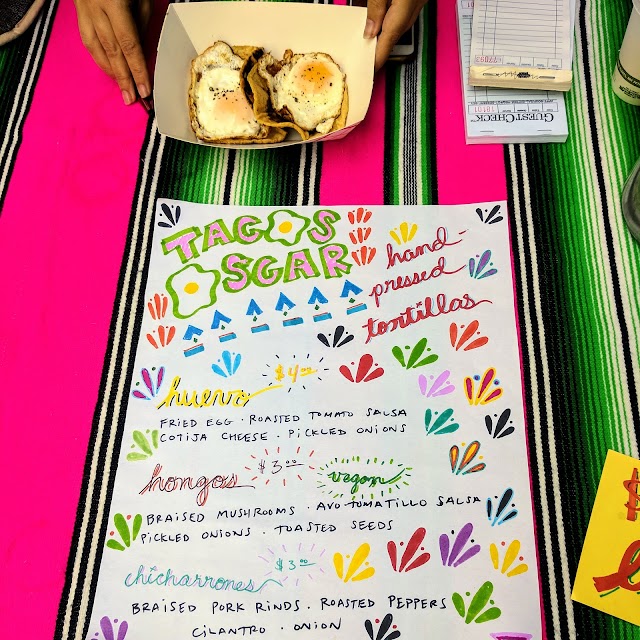 GUESTCHECK
TACOS
OSCAR
hand-
pressed
tortillas
huevo $4.00
FRIED EGG · ROASTED TOMATO SALSA
COTIJA CHEESE · PICKLED ONIONS
hongos $3.00 vegan
BRAISED MUSHROOMS · AVO TOMATILLO SALSA
PICKLED ONIONS · TOASTED SEEDS
chicharrones $3.00
BRAISED PORK RINDS · ROASTED PEPPERS
CILANTRO · ONION